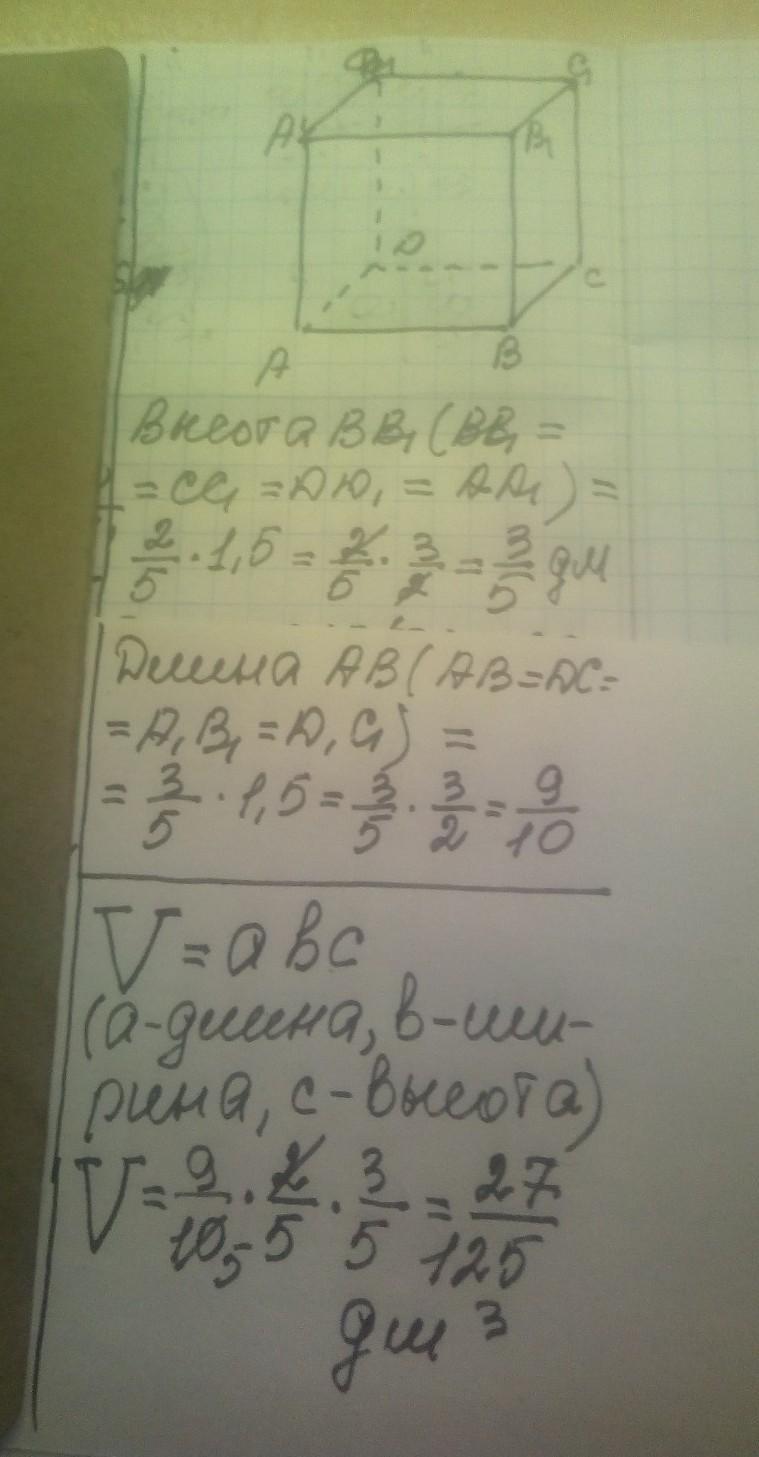 C₁
A₁
B₁
D
C
A
B
Высота BB₁ (BB₁ =
= CC₁ = DD₁ = AA₁) =
2/5 · 1,5 = 2/5 · 3/2 = 3/5 дм
Длина AB (AB = DC =
= A₁B₁ = D₁C₁) =
= 3/5 · 1,5 = 3/5 · 3/2 = 9/10
V = a b c
(a - длина, b - ши-
рина, c - высота)
V = 9/10 5 · 2/5 · 3/5 = 27/125
дм 3